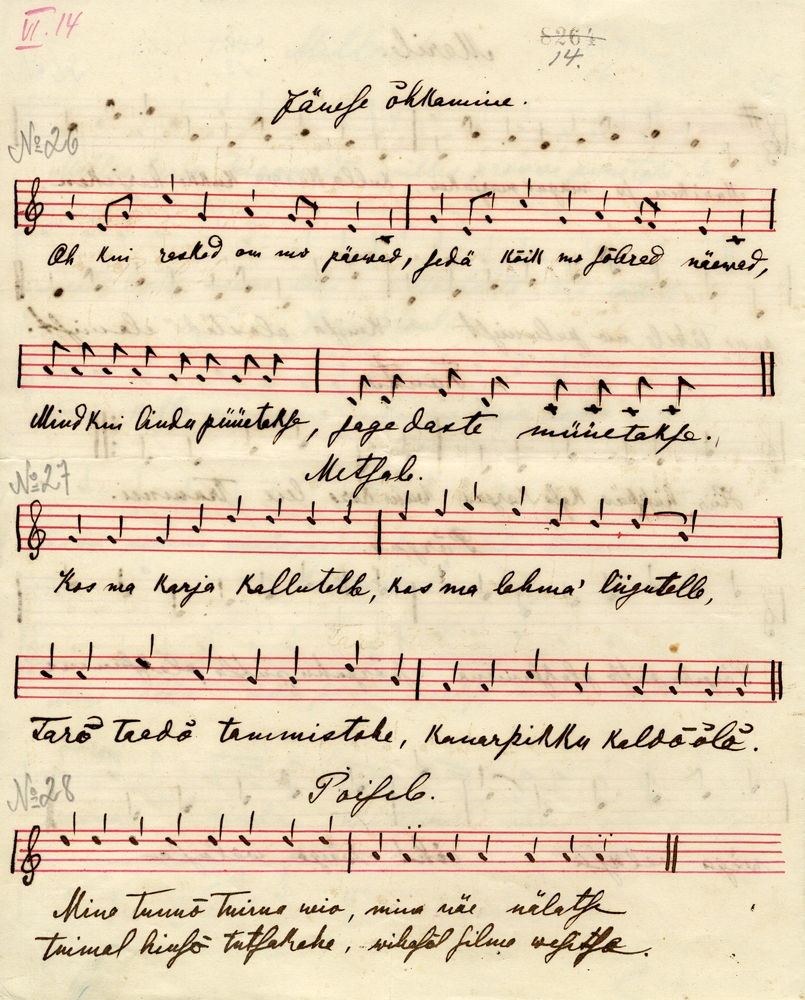 VI. 14
8264
14.
Jänese õhkamine.
№26
Oh kui rasked om mo päewad, sedä kõik mo sõbred näewad,
Mind kui lindu püüetakse, jagedaste müüetakse.
Metsal.
№27
Kos ma karja kallutelle, kos ma lehmä liigutelle,
Tarõ taadõ tammistohe, kanarpikku kaldõ õlõ.
Poisel.
№28
Mino tunnõ tuima neio, mina näe nälatse
tuimal hiusõ tutsakahe, wihasõl silmä wesitse.